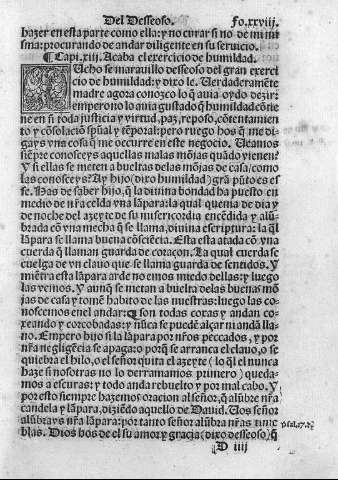 Del Desseoso. Fo.xxviij.
hazer en esta parte como ella: y no curar si no de mi mis
ma: procurando de andar diligente en su seruicio.
¶ Capi. xiij. Acaba el exercicio de humildad.
MUcho se marauillo desseoso del gran exerci
cio de humildad: y dixo le. Verdaderamẽte
madre agora conozco lo q̃ auia oydo dezir:
empero no lo auia gustado q̃ humildad cõtie
ne en si toda justicia y virtud, paz, reposo, cõtentamien
to y cõsolaciõ sp̃ual y tẽporal: pero ruego hos q̃ me di
gays vna cosa q̃ me occurre en este negocio. Veamos
siẽpre conosceys aquellas malas mõjas quãdo vienen?
Y si ellas se meten a bueltas delas mõjas de casa/como
las conosceys? Ay hijo (dixo humildad) grã pũto es el
se. Has de saber hijo, q̃ la diuina bondad ha puesto en
medio de nr̃a celda vna lãpara: la qual quema de dia y
de noche del azeyte de su misericordia encẽdida y alũ-
brada cõ vna mecha q̃ se llama, diuina escriptura: la q̃l
lãpara se llama buena cõsciẽcia. Esta esta atada cõ vna
cuerda q̃ llaman guarda de coraçon. La qual cuerda se
cuelga de vn clauo que se llama guarda de sentidos. Y
miẽtra esta lãpara arde no emos miedo dellas: y luego
las vemos. Y aunq̃ se metan a buelta delas buenas mõ
jas de casa y tomẽ habito de las nuestras: luego las co-
noscemos enel andar: Q son todas coxas y andan co-
xeando y corcobadas: y nũca se puedẽ alçar ni andã lla-
no. Empero hijo si la lãpara por nr̃os peccados, y por
nr̃a negligẽcia se apaga: o porq̃ se arranca el clauo, o se
quiebra el hilo, o el señor quita el azeyte (lo q̃l el nunca
haze si nosotras no lo derramamos primero) queda-
mos a escuras: y todo anda rebuelto y por mal cabo. Y
por esto siempre hazemos oracion al señor, q̃ alũbre nr̃a
candela y lãpara, diziẽdo aquello de Dauid. Vos señor
alũbrays nr̃a lãpara: por tanto señor alũbra nr̃as tinie
blas. Dios hos de el su amor y gracia (dixo desseoso) q̃
D iiij